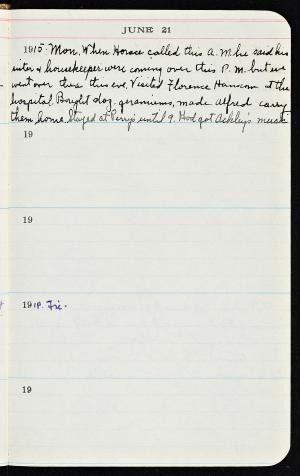 JUNE 21
1915 Mon. When Horace called this A.M. he said his
sister & housekeeper were coming over this P.M. but we
went over there this eve. Visited Florence Hanson at the
hospital. Bought doz. geraniums, made Alfred carry
them home. Stayed at Perry's until 9. Had got Ackley's music
19
19
1918. Fri.
19